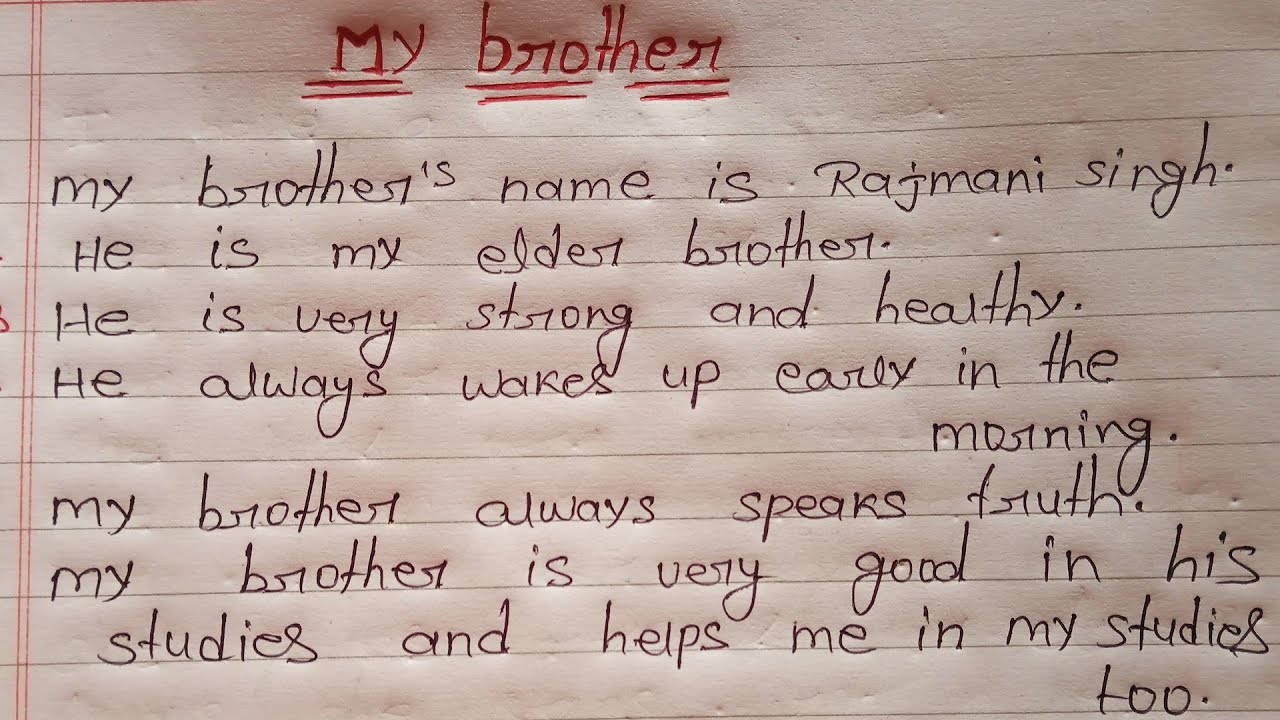 My brother
my brother's name is Rajmani singh.
He is my elder brother.
He is very strong and healthy.
He always wakes up early in the
morning.
my brother always speaks truth.
my brother is very good in his
studies and helps me in my studies
too.